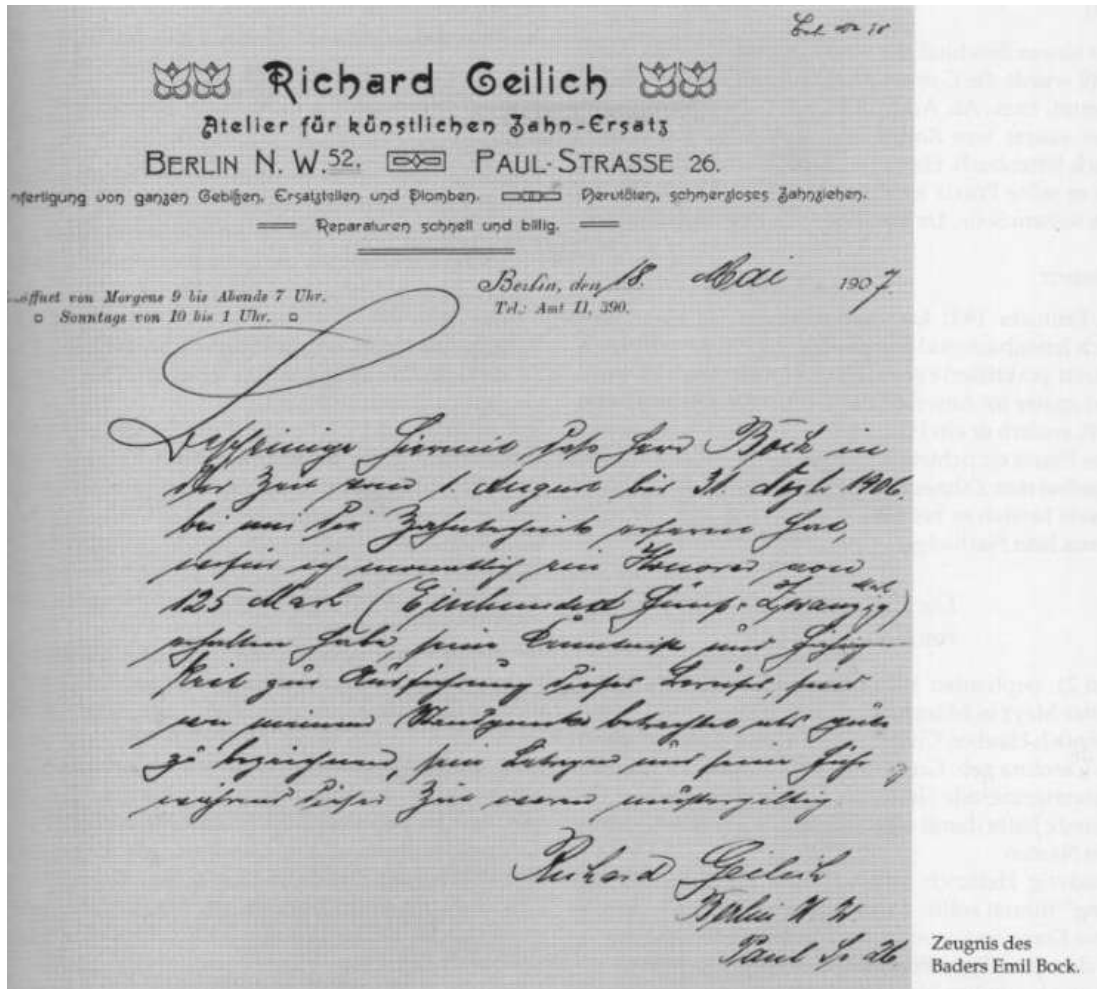 Richard Geilich
Atelier für künstlichen Zahn-Ersatz
BERLIN N. W. 52. PAUL-STRASSE 26.
nfertigung von ganzen Gebißen, Ersatzteilen und Plomben. Nervtöten, schmerzloses Zahnziehen.
Reparaturen schnell und billig.
Berlin, den 18. Mai 1907.
öffnet von Morgens 9 bis Abends 7 Uhr.
Tel.: Amt II, 390.
Sonntags von 10 bis 1 Uhr.
Bescheinige hiermit daß Herr Bock in
der Zeit vom 1. August bis 31. 1906
bei mir die Zahntechnik erlernt hat,
wofür ich monatlich ein Honorar von
125 Mark (Einhundert Fünf u Zwanzig Mark)
erhalten habe, seine Kenntniße und Fähig-
keit zur Ausführung dieses Berufes, sind
von meinem Standpunkte betrachtet als gute
zu bezeichnen, sein Betragen und seine
während dieser Zeit waren mustergiltig
Richard Geilich
Berlin N W
Paul Str 26
Zeugnis des
Baders Emil Bock.